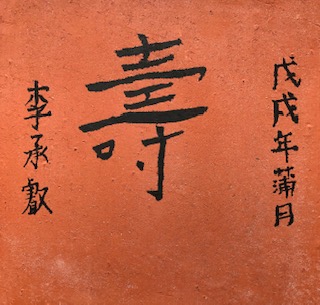 戊戌年蒲月
壽
李承叡